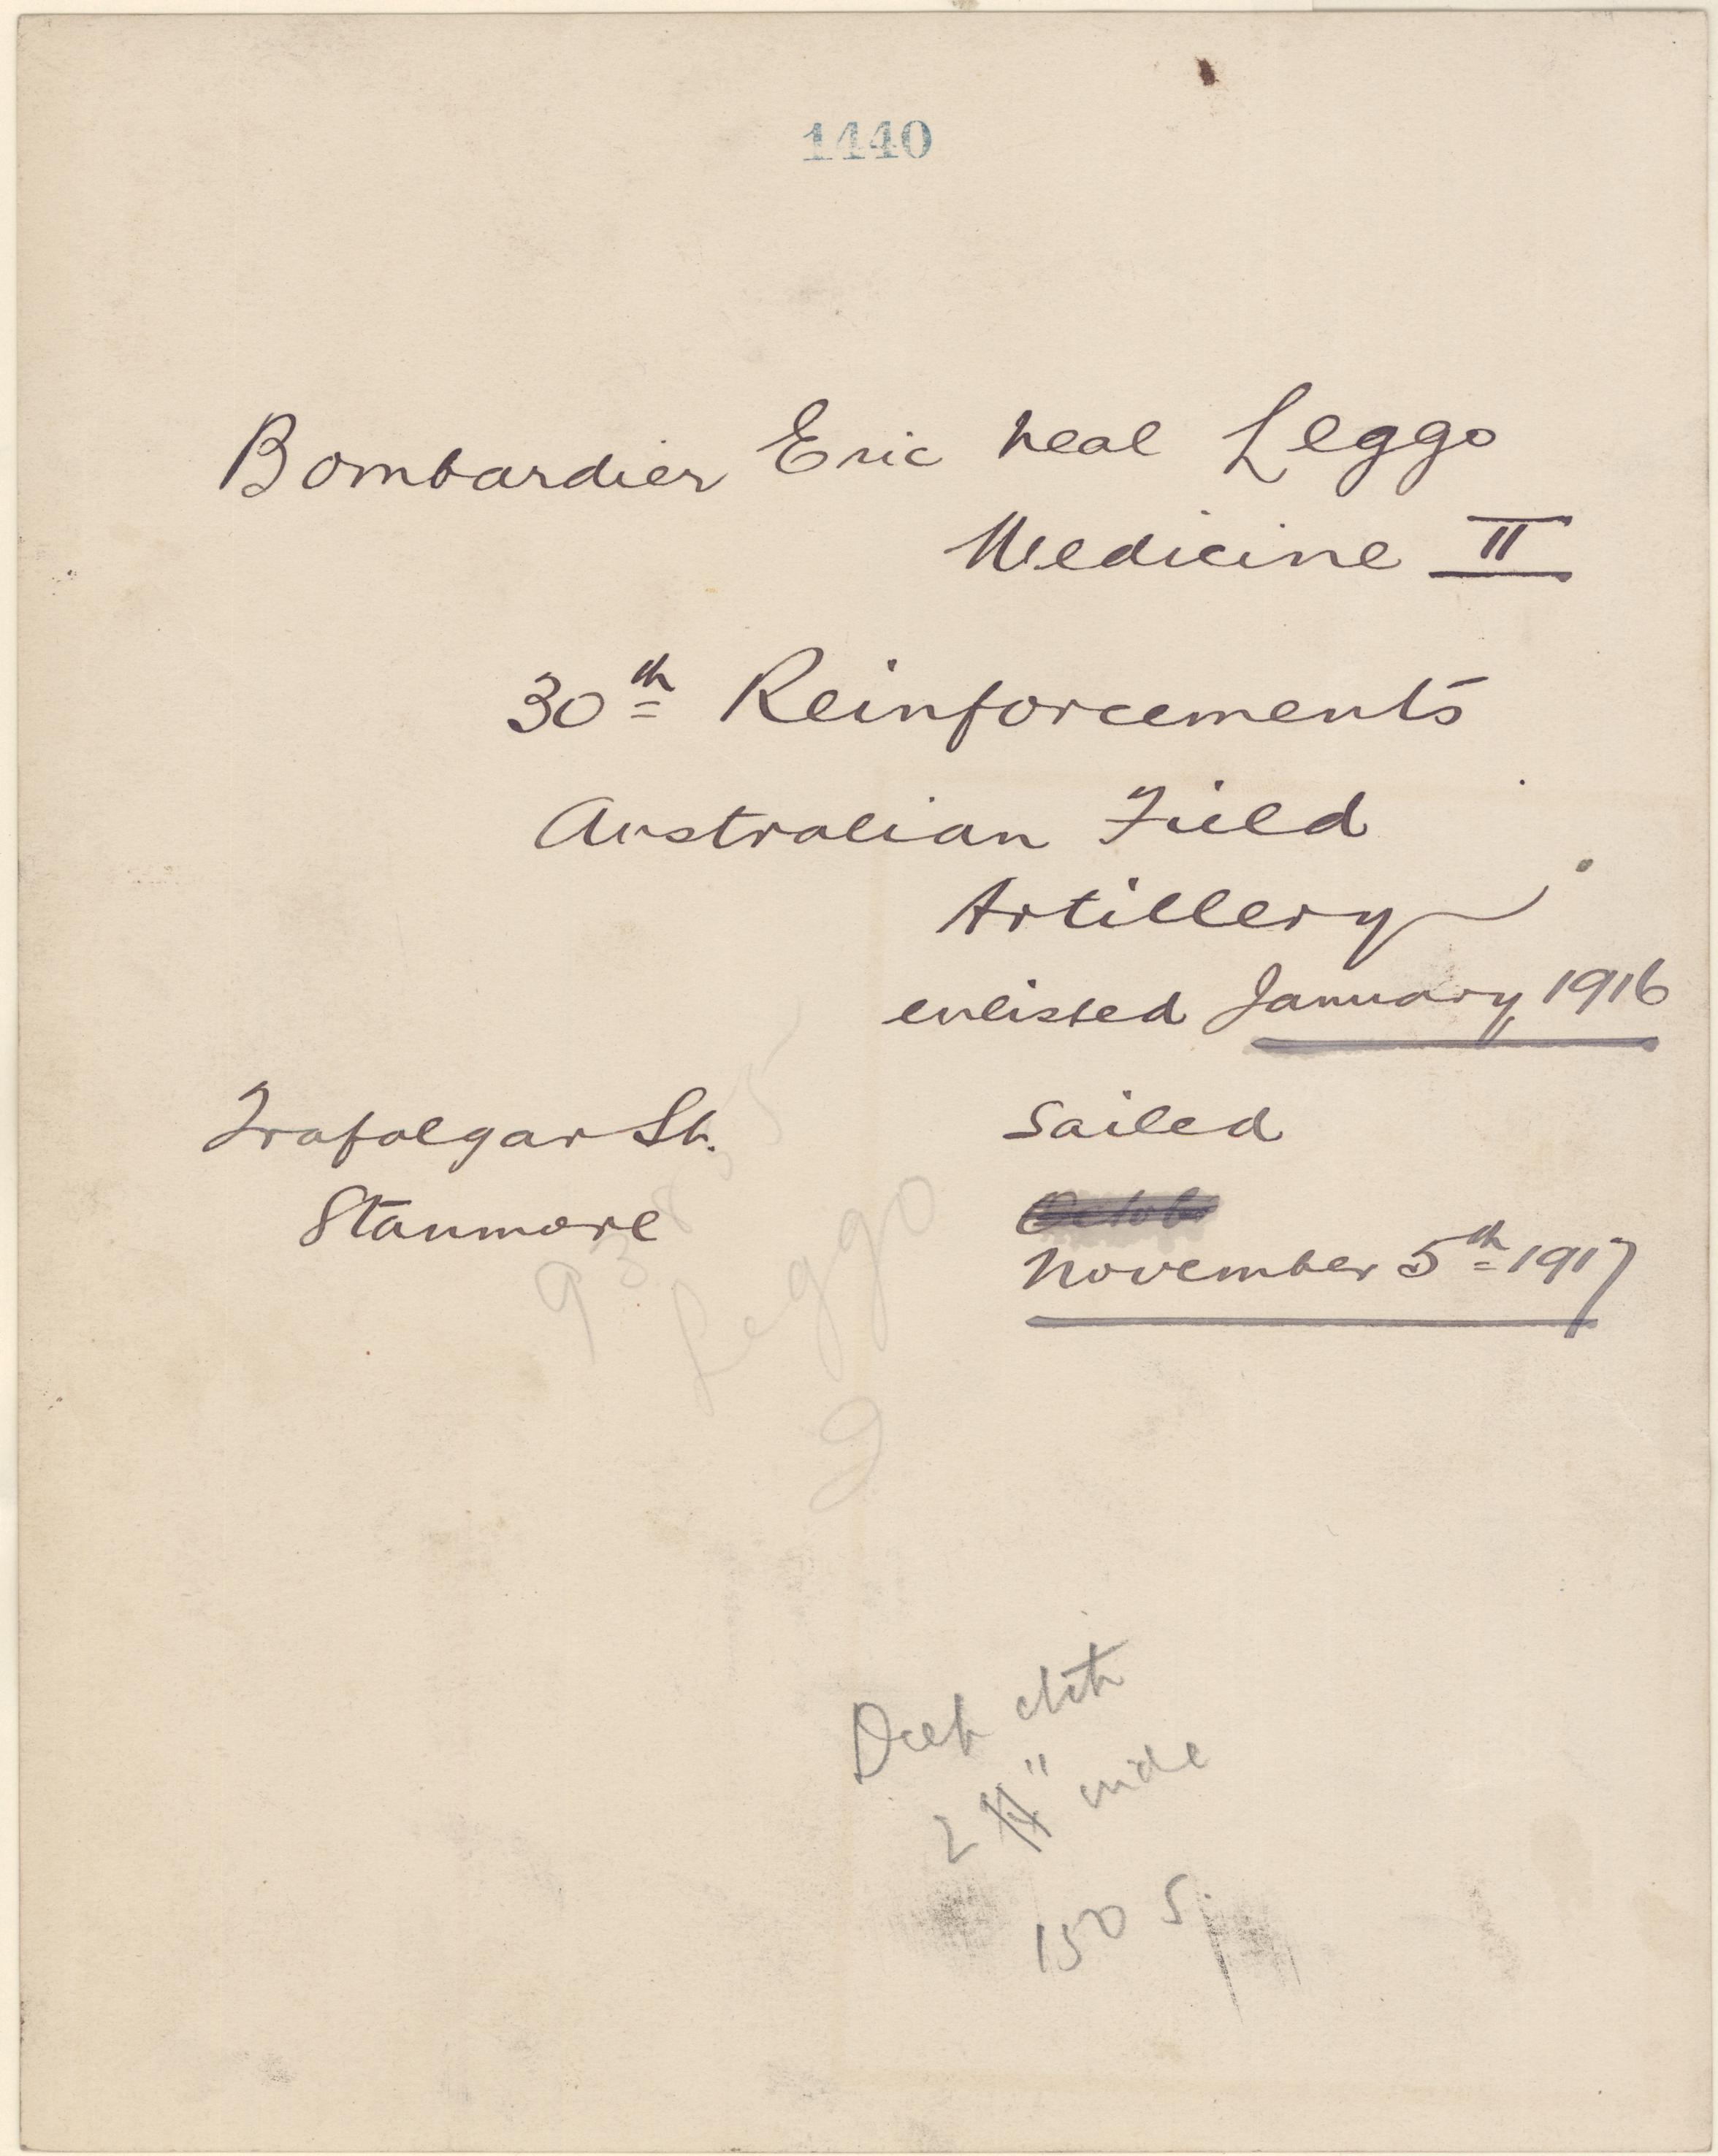 1440
Bombardier Eric Neal Leggo
Medicine II
30th Reinforcements
Australian Field
Artillery
enlisted January, 1916
Trafalgar St.
Stanmore
Sailed
Octob
November 5th 1917
Leggo
2
" wide
150 S